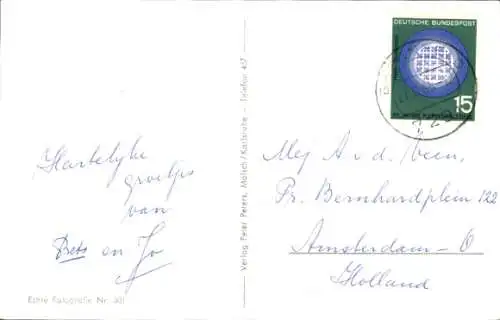 DEUTSCHE BUNDESPOST
15
Hartelijke
groetjes
van
Bets en Jo
Echte Fotografie Nr.
Verlag Peter Peters, Malsch/Karlsruhe - Telefon 457
Mej A v. d. Veen,
Pr. Bernhardplein 122
Amsterdam - O
Holland